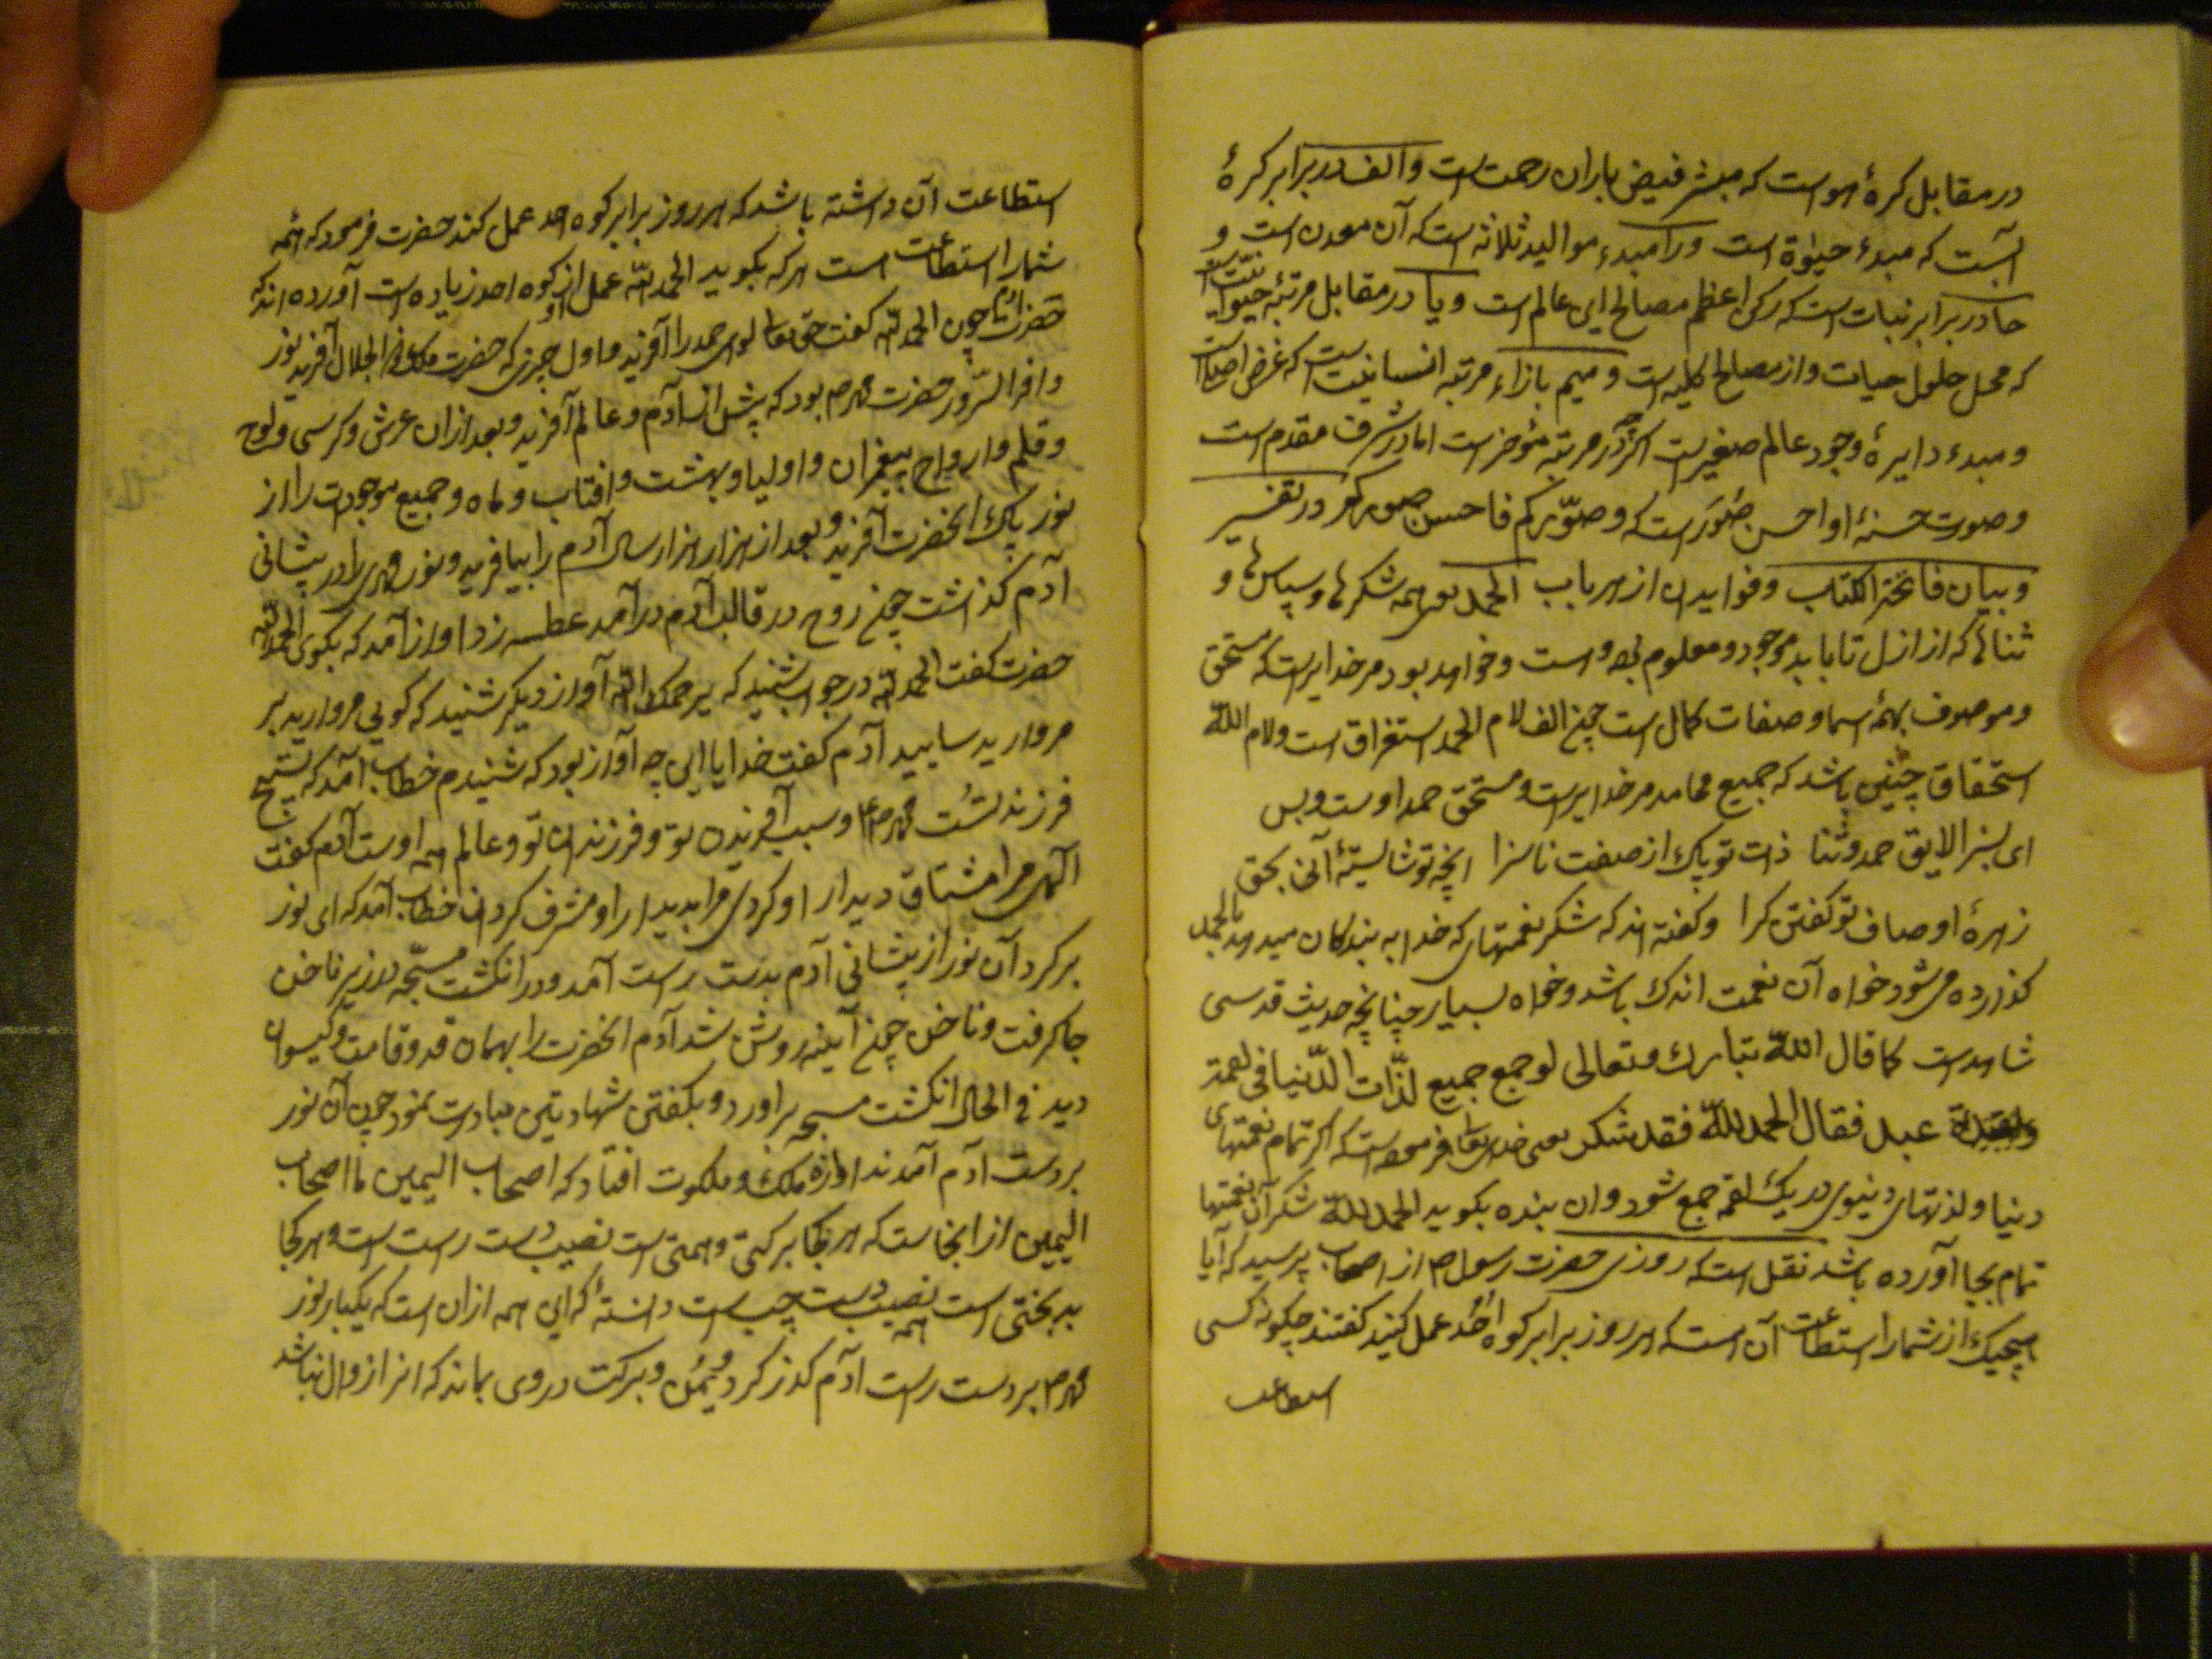 در مقابل کرهٔ هواست که مبشر فیض باران رحمت است والف در برابر کرهٔ
آبست که مبدء حیوة است ورا مبدء موالید ثلاثه است که آن معدن است و
حا در برابر نبات است که رکن اعظم مصالح این عالم است ویا در مقابل مرتبهٔ حیوانیت است
که محل حلول حیات واز مصالح کلیه است ومیم بازاء مرتبه انسانیت است که غرض اصلیست
ومبدء دایرهٔ وجود عالم صغیرست اگرچه در مرتبه مؤخرست اما در شرف مقدم است
وصورت حسنهٔ او احسن صُوَرست که وصوّرکم فاحسن صورکم در تفسیر
وبیان فاتحة الکتاب وفواید ان از هر باب الحمد یعنی همه شکرها وسپاس ها و
ثناها که از ازل تا باید موجود ومعلوم بوده است وخواهد بود مر خدایراست که مستحق
وموصوف بهمهٔ اسما وصفات کمال است چنچ الف لام الحمد استغراق است ولام لله
استحقاق چنین باشد که جمیع محامد مر خدایراست ومستحق حمد اوست وبس
ای بسزا لایق حمد وثنا ذات تو پاک از صفت ناسزا انچه تو شایستهٔ آنی بحق
زهرهٔ اوصاف تو گفتن کرا وگفته اند که شکر نعمتهای که خدا به بندکان میدهد بالحمد
گذارده می شود خواه آن نعمت اندک باشد وخواه بسیار چنانچه حدیث قدسی
شاهدست کما قال الله تبارک وتعالی لو جمع جمیع لذّات الدّنیا فی لقمة
عبد فقال الحمد لله فقد شکر یعنی خدای تعا فرموده است که اگر تمام نعمتهای
دنیا ولذتهای دنیوی در یک لقمه جمع شود وان بنده بکوید الحمد لله شکر آن نعمتها
تمام بجا آورده باشد نقل است که روزی حضرت رسول ص از اصحاب پرسید که آیا
هیچیک از شما را استطاعت آن است که هر روز برابر کوه اُحُد عمل کنید کفتند چکونه کسی
استطاعت
استطاعت آن داشته باشد که هر روز برابر کوه احد عمل کند حضرت فرمود که همه
شما را استطاعت است هر که بکوید الحمد لله عمل او از کوه احد زیاده است آورده اند که
حضرت آدم چون الحمد لله کفت حق تعا لوای حمد را آفرید واول چیزی که حضرت ملک ذو الجلال آفرید نور
وافر السّرور حضرت محمد ص بود که پیش از آدم وعالم آفرید وبعد ازان عرش وکرسی ولوح
وقلم وارواح پیغمران واولیا وبهشت وافتاب وماه وجمیع موجودات را از
نور پاک انحضرت آفرید وبعد از هزار هزار سال آدم را بیافرید ونور محمدی را در پیشانی
آدم گذاشت چنچ روح در قالب آدم درآمد عطسه زد اواز آمد که بکوی الحمد لله
حضرت کفت الحمد لله در جواب شنید که یرحمک الله آواز دیکر شنید که کویی مروارید بر
مروارید سایید آدم کفت خدایا این چه آواز بود که شنیدم خطاب آمد که تسبیح
فرزند تُست محمد ص وسبب آفریدن تو وفرزندان تو وعالم همه اوست آدم کفت
الهی مرا مشتاق دیدار او کردی مرا بدیدار او مشرف کردان خطاب آمد که ای نور
برکرد آن نور از پیشانی آدم بدست راست آمد ودر انکشت مسبّحه در زیر ناخن
جا کرفت وناخن چنچ آینه روشن شد آدم انحضرت را بهمان قد وقامت وکیسوان
دید فی الحال انکشت مسبحه براورد وبکفتن شهادتین مبادرت نمود چون آن نور
بر دست آدم آمد ندا اوازه ملک وملکوت افتاد که اصحاب الیمین ما اصحاب
الیمین از انجاست که هر کجا برکتی وهمتی است نصیب دست راست است وهر کجا
بدبختی است نصیب دست چپ است دانستهٔ که این همه ازان است که یکبار نور
محمد ص بر دست راست آدم کذر کرد ویُمْن وبرکت در وی بماند که انرا زوال نباشد